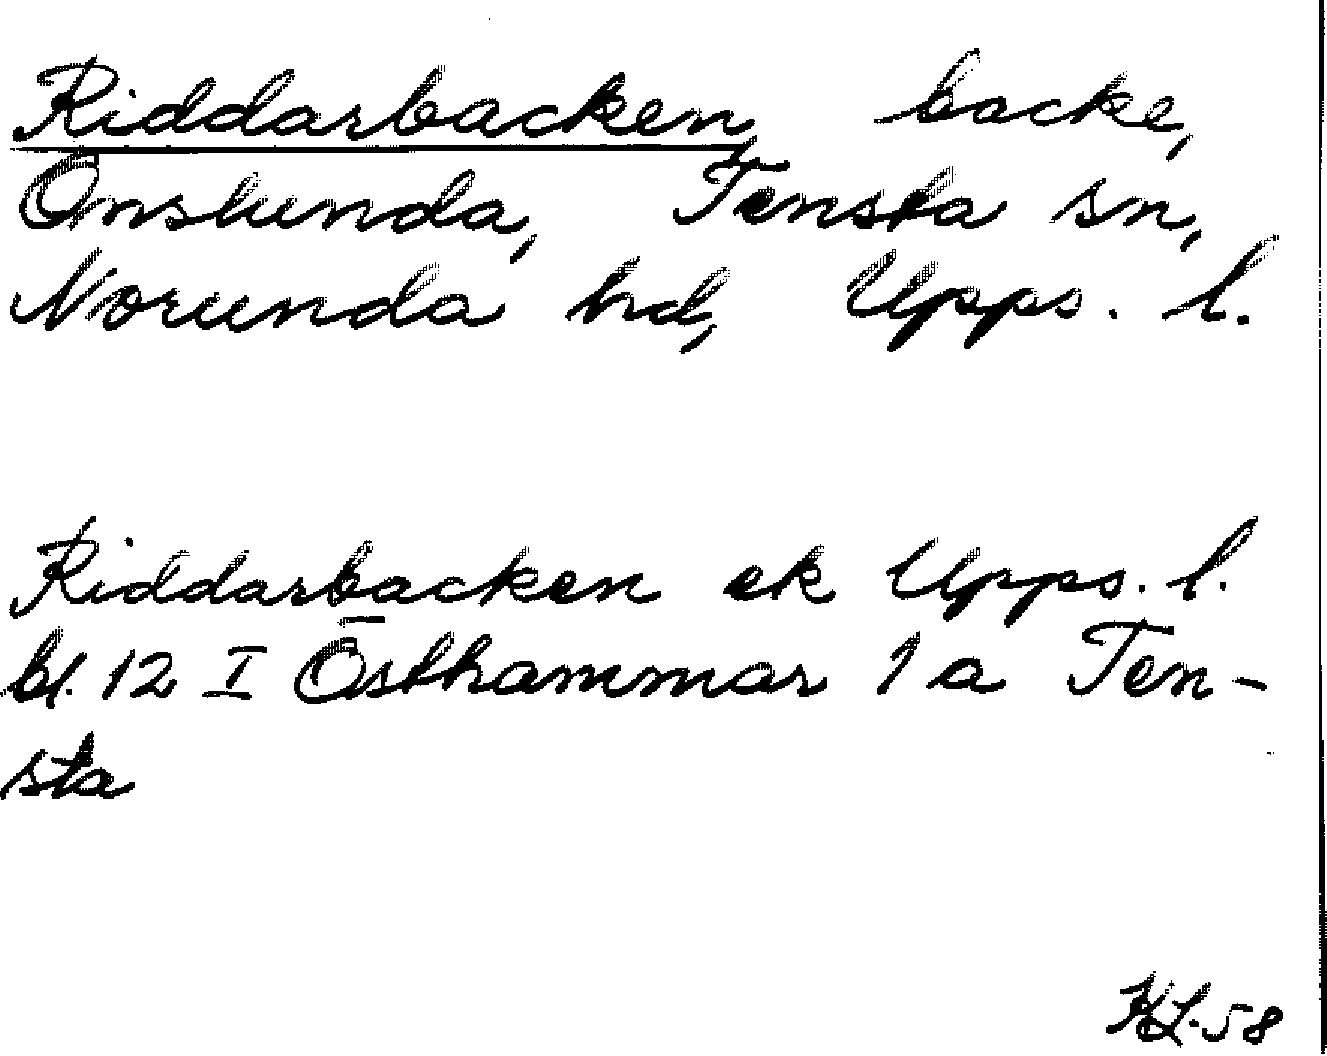 Riddarbacken, backe,
Önslunda, Tensta sn,
Norunda hd, Upps. l.
Riddarbacken ek Upps. l.
bl. 12 I Östhammar 1 a Ten-
sta
KL. 58